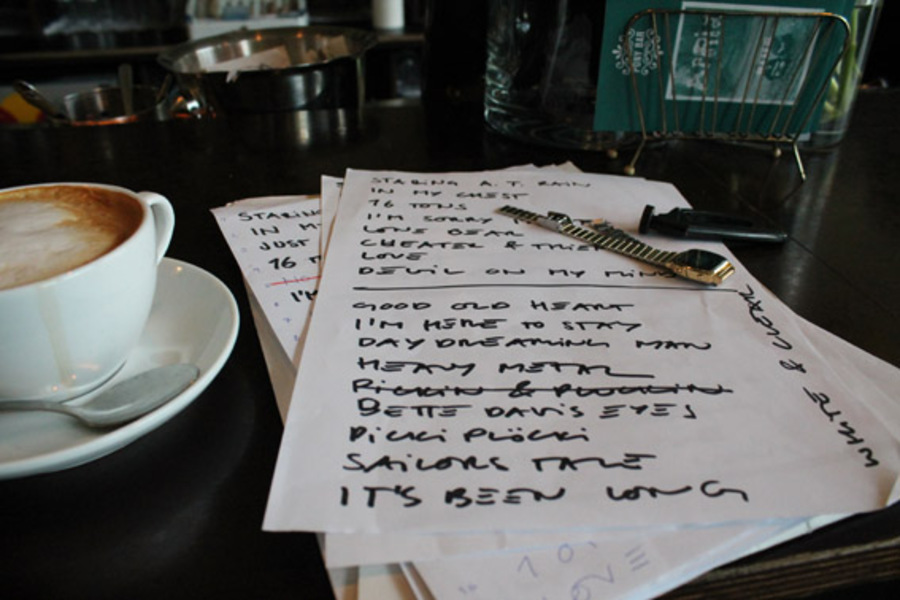 STARING A.T. RAIN
IN MY CHEST
16 TONS
I'M SORRY
LOVE BEAR
CHEATER & THIE
LOVE
DEVIL ON MY MIND
GOOD OLD HEART
I'M HERE TO STAY
DAY DREAMING MAN
HEAVY METAL
RICKIN & PLOCKIN
BETTE DAVIS EYES
PICKI PLÖCKI
SAILORS TALE
IT'S BEEN LONG
WHITE R
STARIN
IN M
JUST
16 T
I'M